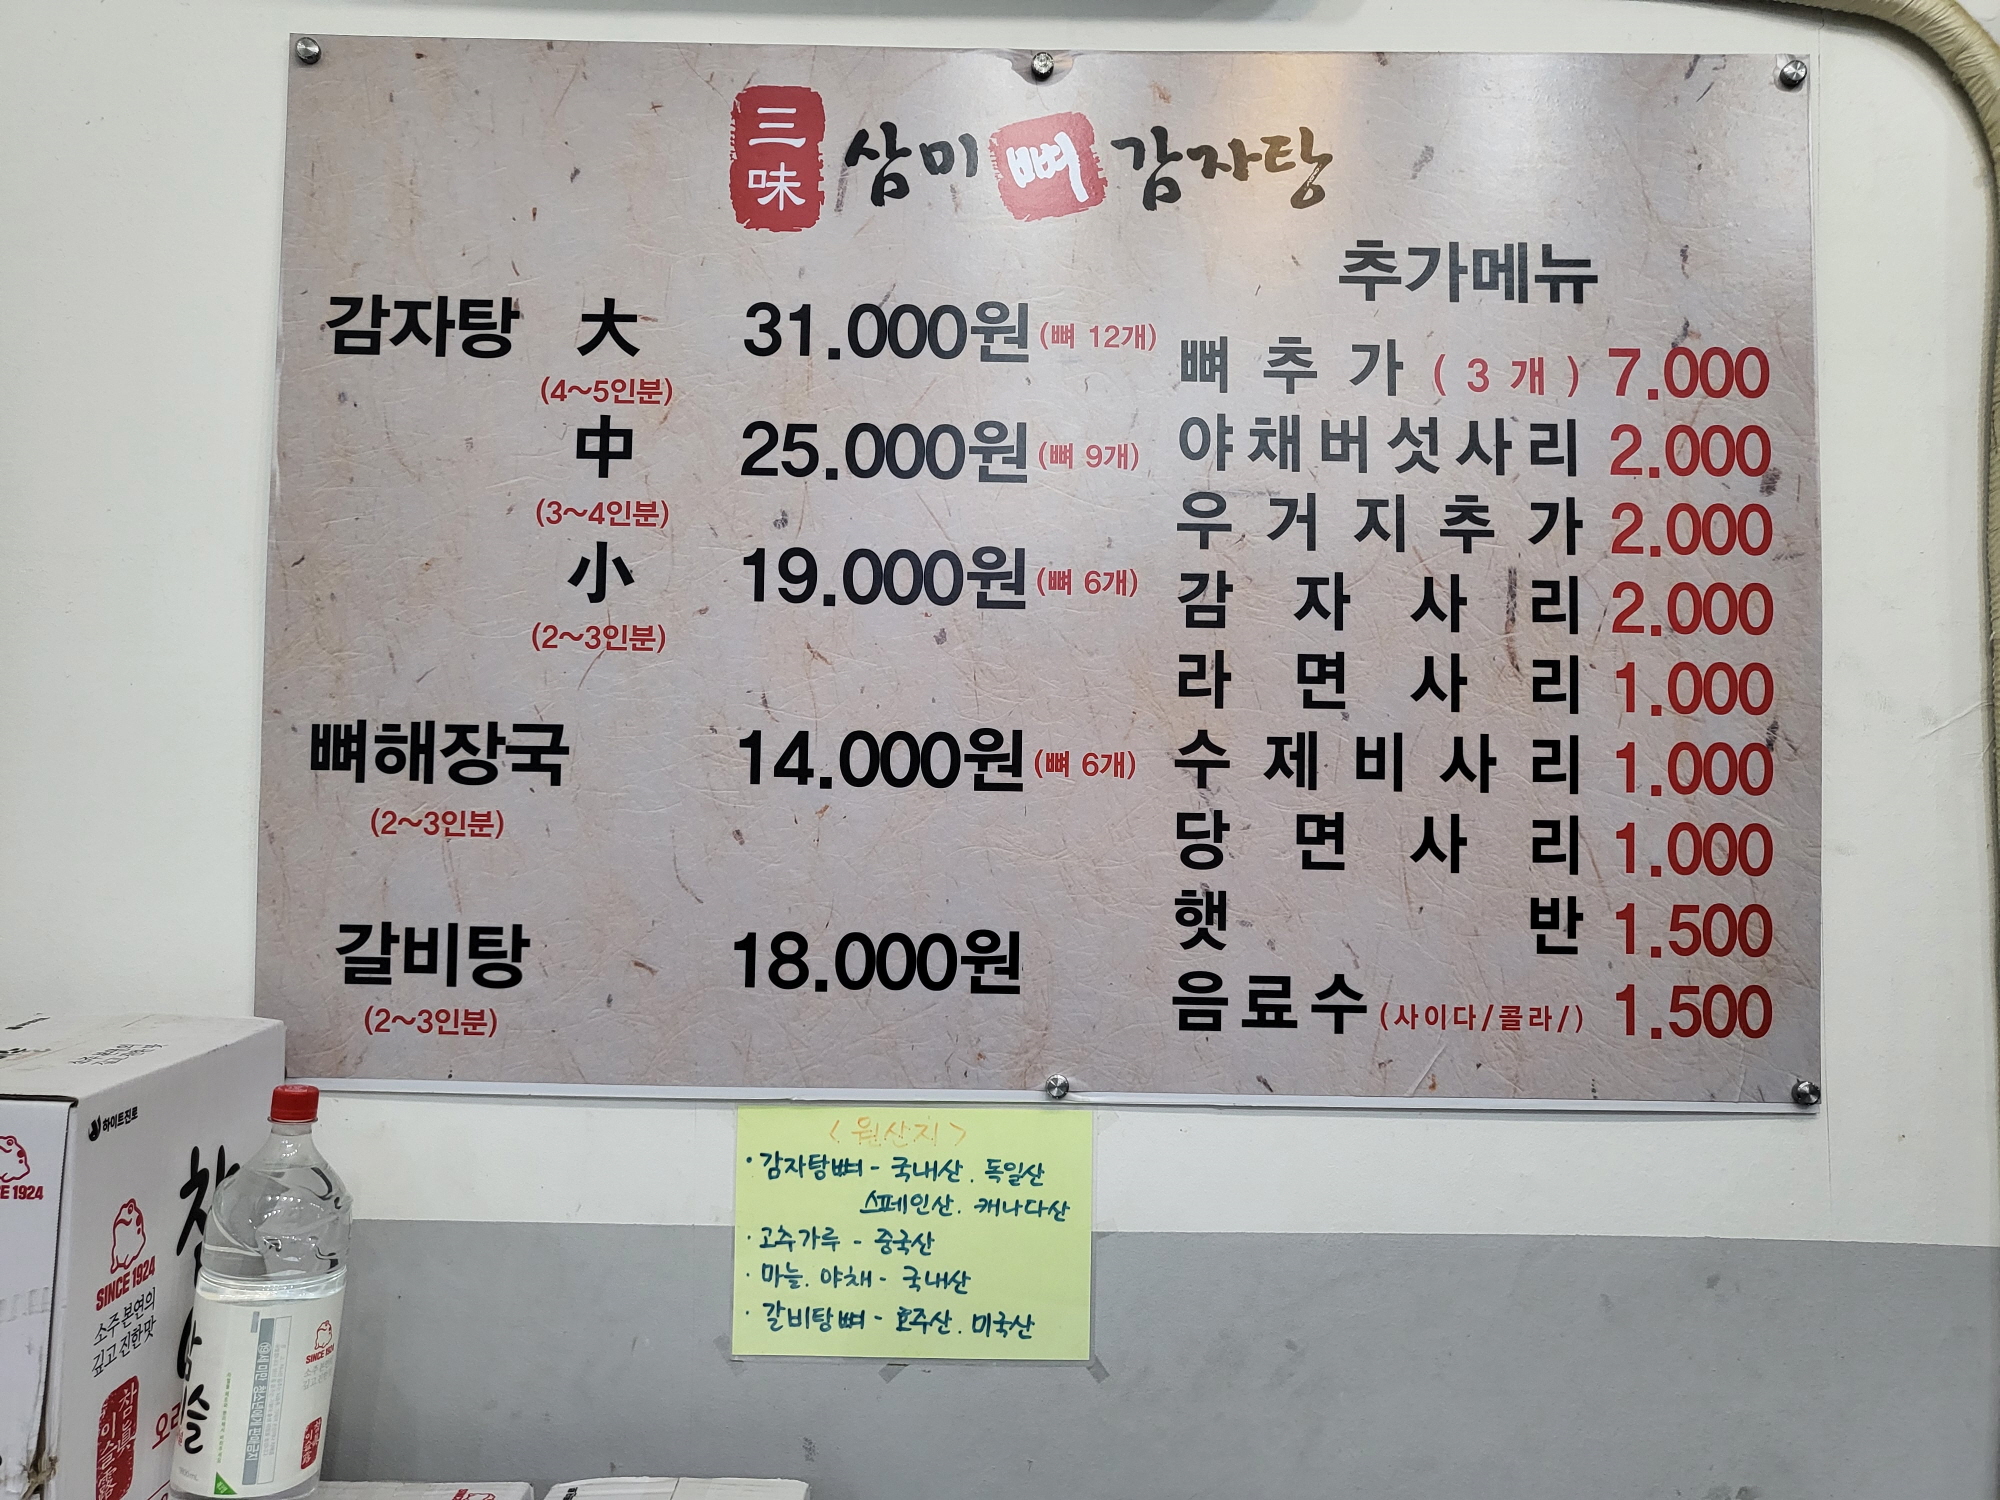 三味 삼미 뼈 감자탕
감자탕 大 31.000원 (뼈 12개)
(4~5인분)
中 25.000원 (뼈 9개)
(3~4인분)
小 19.000원 (뼈 6개)
(2~3인분)
뼈해장국 14.000원 (뼈 6개)
(2~3인분)
갈비탕 18.000원
(2~3인분)
추가메뉴
뼈추가 (3개) 7.000
야채버섯사리 2.000
우거지추가 2.000
감자사리 2.000
라면사리 1.000
수제비사리 1.000
당면사리 1.000
햇반 1.500
음료수 (사이다/콜라/) 1.500
<원산지>
·감자탕뼈 - 국내산. 독일산
스페인산. 캐나다산
·고추가루 - 중국산
·마늘. 야채 - 국내산
·갈비탕뼈 - 호주산. 미국산
하이트진로
E 1924
SINCE 1924
소주 본연의
깊고 진한 맛
참眞
이슬露
SINCE 1924
19세 미만 청소년에게 판매금지